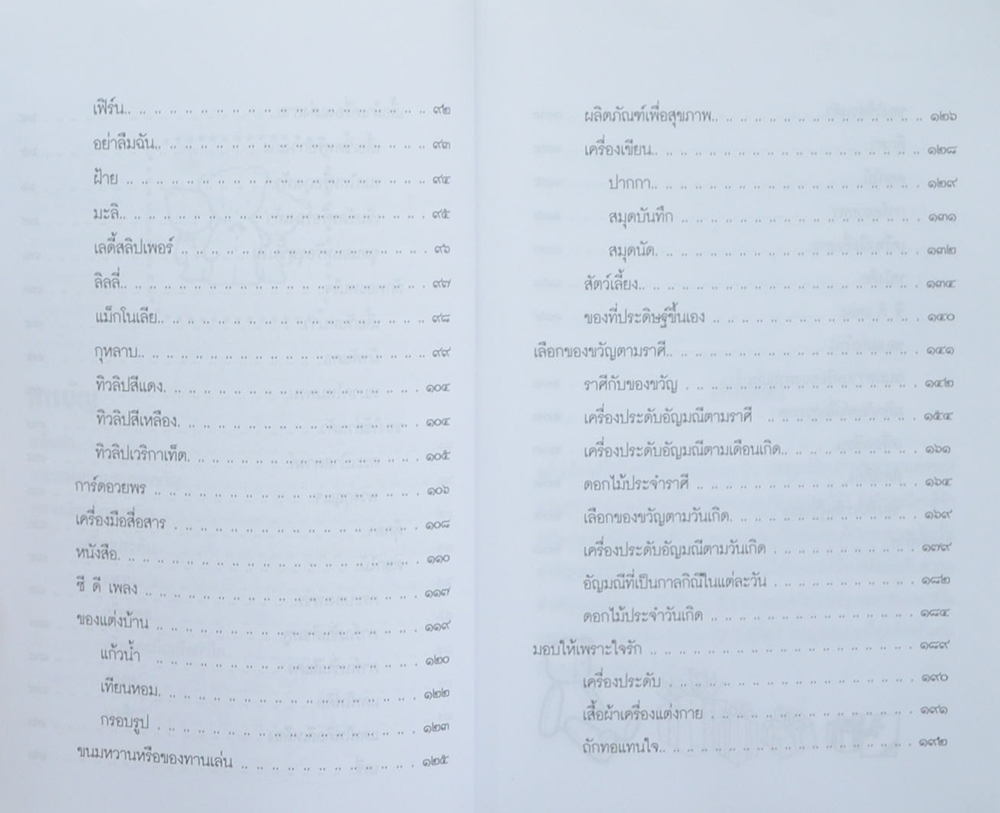 เฟิร์น.. .. .. .. .. .. .. .. .. .. .. .. .. .. .. .. .. .. .. ๙๒
อย่าลืมฉัน.. .. .. .. .. .. .. .. .. .. .. .. .. .. .. .. .. ๙๓
ฝ้าย .. .. .. .. .. .. .. .. .. .. .. .. .. .. .. .. .. .. .. ๙๔
มะลิ.. .. .. .. .. .. .. .. .. .. .. .. .. .. .. .. .. .. .. ๙๕
เลดี้สลิปเพอร์ .. .. .. .. .. .. .. .. .. .. .. .. .. .. .. .. ๙๖
ลิลลี่.. .. .. .. .. .. .. .. .. .. .. .. .. .. .. .. .. .. .. ๙๗
แม็กโนเลีย.. .. .. .. .. .. .. .. .. .. .. .. .. .. .. .. .. ๙๘
กุหลาบ.. .. .. .. .. .. .. .. .. .. .. .. .. .. .. .. .. .. ๙๙
ทิวลิปสีแดง. .. .. .. .. .. .. .. .. .. .. .. .. .. .. .. ๑๐๔
ทิวลิปสีเหลือง. .. .. .. .. .. .. .. .. .. .. .. .. .. .. ๑๐๔
ทิวลิปเวริกาเท็ด. .. .. .. .. .. .. .. .. .. .. .. .. .. .. ๑๐๕
การ์ดอวยพร .. .. .. .. .. .. .. .. .. .. .. .. .. .. .. .. ๑๐๖
เครื่องมือสื่อสาร .. .. .. .. .. .. .. .. .. .. .. .. .. .. .. ๑๐๘
หนังสือ. .. .. .. .. .. .. .. .. .. .. .. .. .. .. .. .. .. .. ๑๑๐
ซี ดี เพลง .. .. .. .. .. .. .. .. .. .. .. .. .. .. .. .. .. ๑๑๗
ของแต่งบ้าน .. .. .. .. .. .. .. .. .. .. .. .. .. .. .. .. ๑๑๙
แก้วน้ำ .. .. .. .. .. .. .. .. .. .. .. .. .. .. .. .. ๑๒๐
เทียนหอม. .. .. .. .. .. .. .. .. .. .. .. .. .. .. .. ๑๒๒
กรอบรูป .. .. .. .. .. .. .. .. .. .. .. .. .. .. .. .. ๑๒๓
ขนมหวานหรือของทานเล่น .. .. .. .. .. .. .. .. .. .. .. ๑๒๕
ผลิตภัณฑ์เพื่อสุขภาพ.. .. .. .. .. .. .. .. .. .. .. .. .. ๑๒๖
เครื่องเขียน.. .. .. .. .. .. .. .. .. .. .. .. .. .. .. .. .. ๑๒๘
ปากกา.. .. .. .. .. .. .. .. .. .. .. .. .. .. .. .. .. ๑๒๙
สมุดบันทึก .. .. .. .. .. .. .. .. .. .. .. .. .. .. .. ๑๓๑
สมุดนัด. .. .. .. .. .. .. .. .. .. .. .. .. .. .. .. .. ๑๓๒
สัตว์เลี้ยง.. .. .. .. .. .. .. .. .. .. .. .. .. .. .. .. .. ๑๓๔
ของที่ประดิษฐ์ขึ้นเอง .. .. .. .. .. .. .. .. .. .. .. .. .. ๑๔๐
เลือกของขวัญตามราศี.. .. .. .. .. .. .. .. .. .. .. .. .. .. .. ๑๔๑
ราศีกับของขวัญ .. .. .. .. .. .. .. .. .. .. .. .. .. .. ๑๔๒
เครื่องประดับอัญมณีตามราศี .. .. .. .. .. .. .. .. .. .. ๑๕๔
เครื่องประดับอัญมณีตามเดือนเกิด.. .. .. .. .. .. .. .. .. ๑๖๑
ดอกไม้ประจำราศี .. .. .. .. .. .. .. .. .. .. .. .. .. .. ๑๖๔
เลือกของขวัญตามวันเกิด. .. .. .. .. .. .. .. .. .. .. .. ๑๖๙
เครื่องประดับอัญมณีตามวันเกิด .. .. .. .. .. .. .. .. .. ๑๗๙
อัญมณีที่เป็นกาลกิณีในแต่ละวัน .. .. .. .. .. .. .. .. .. ๑๘๒
ดอกไม้ประจำวันเกิด .. .. .. .. .. .. .. .. .. .. .. .. .. ๑๘๔
มอบให้เพราะใจรัก .. .. .. .. .. .. .. .. .. .. .. .. .. .. .. .. ๑๘๙
เครื่องประดับ .. .. .. .. .. .. .. .. .. .. .. .. .. .. .. ๑๙๐
เสื้อผ้าเครื่องแต่งกาย .. .. .. .. .. .. .. .. .. .. .. .. .. ๑๙๑
ถักทอแทนใจ.. .. .. .. .. .. .. .. .. .. .. .. .. .. .. .. ๑๙๒